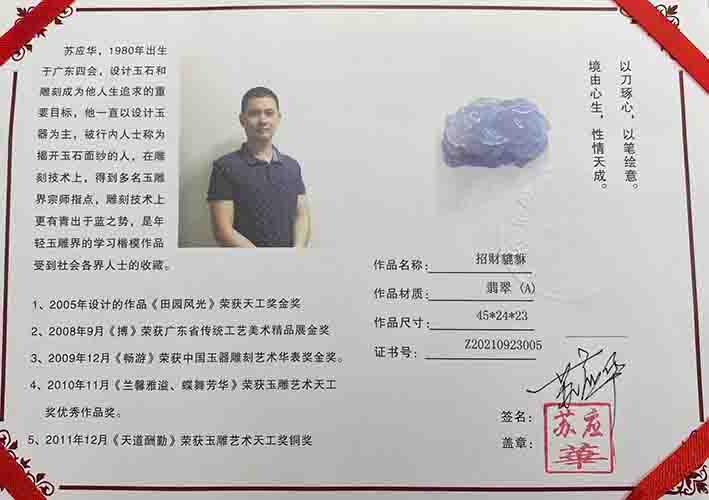 苏应华，1980年出生
于广东四会，设计玉石和
雕刻成为他人生追求的重
要目标，他一直以设计玉
器为主，被行内人士称为
揭开玉石面纱的人，在雕
刻技术上，得到多名玉雕
界宗师指点，雕刻技术上
更有青出于蓝之势，是年
轻玉雕界的学习楷模作品
受到社会各界人士的收藏。
1、2005年设计的作品《田园风光》荣获天工奖金奖
2、2008年9月《博》荣获广东省传统工艺美术精品展金奖
3、2009年12月《畅游》荣获中国玉器雕刻艺术华表奖金奖。
4、2010年11月《兰馨雅溢、蝶舞芳华》荣获玉雕艺术天工
奖优秀作品奖。
5、2011年12月《天道酬勤》荣获玉雕艺术天工奖铜奖
以刀琢心，以笔绘意。
境由心生，性情天成。
作品名称：招财貔貅
作品材质：翡翠 (A)
作品尺寸：45*24*23
证书号：Z20210923005
签名：苏应华
盖章：
苏应
華